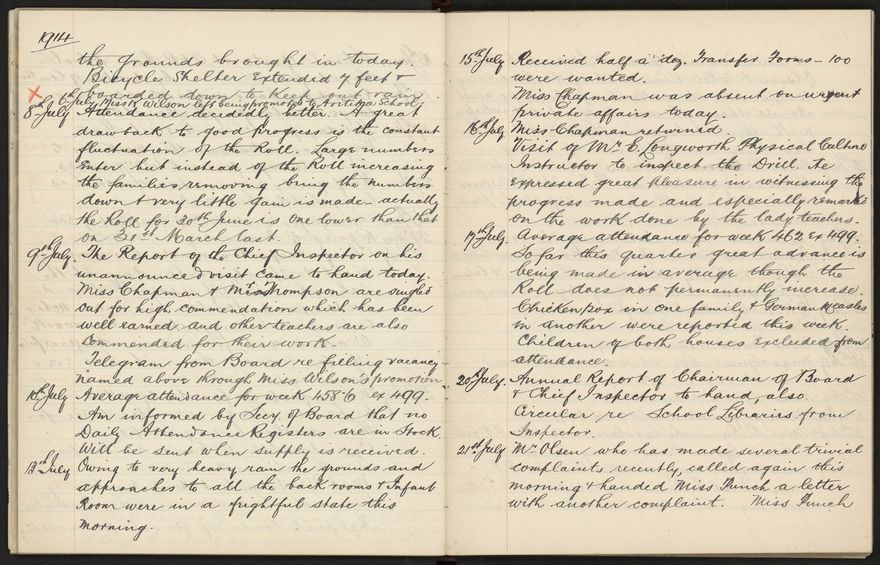 1914
the grounds brought in today.
Bicycle Shelter Extended 7 feet &
boarded down to keep out rain.
6th July Miss K Wilson left being promoted to School
8th July Attendance decidedly better. A great
drawback to good progress is the constant
fluctuation of the Roll. Large numbers
Enter but instead of the Roll increasing
the families removing bring the numbers
down & very little gain is made - actually
the Roll for 30th June is one lower than that
on 31st March last.
9th July. The Report of the Chief Inspector on his
unannounced visit came to hand today.
Miss Chapman & Miss Thompson are singled
out for high commendation which has been
well earned and other teachers are also
Commended for their work.
Telegram from Board re filling vacancy
named above through Miss Wilson's promotion
10th July Average attendance for week 458·6 ex 499.
Am informed by Secy of Board that no
Daily Attendance Registers are in Stock.
Will be sent when supply is received.
13th July Owing to very heavy rain the grounds and
approaches to all the back rooms & Infant
Room were in a frightful state this
morning.
15th July Received half a doz. Transfer Forms - 100
were wanted.
Miss Chapman was absent on urgent
private affairs today.
16th July Miss Chapman returned.
Visit of Mr E. Longworth Physical Culture
Instructor to inspect the Drill. He
expressed great pleasure in witnessing the
progress made and especially remarked
on the work done by the lady teachers.
17th July. Average attendance for week 462 ex 499.
So far this quarter great advance is
being made in average though the
Roll does not permanently increase.
Chicken pox in one family & German Measles
in another were reported this week.
Children of both houses Excluded from
attendance.
20th July. Annual Report of Chairman of Board
& Chief Inspector to hand, also
Circular re School Libraries from
Inspector.
21st July Mr Olsen who has made several trivial
complaints recently, called again this
morning & handed Miss Funch a letter
with another complaint. Miss Funch